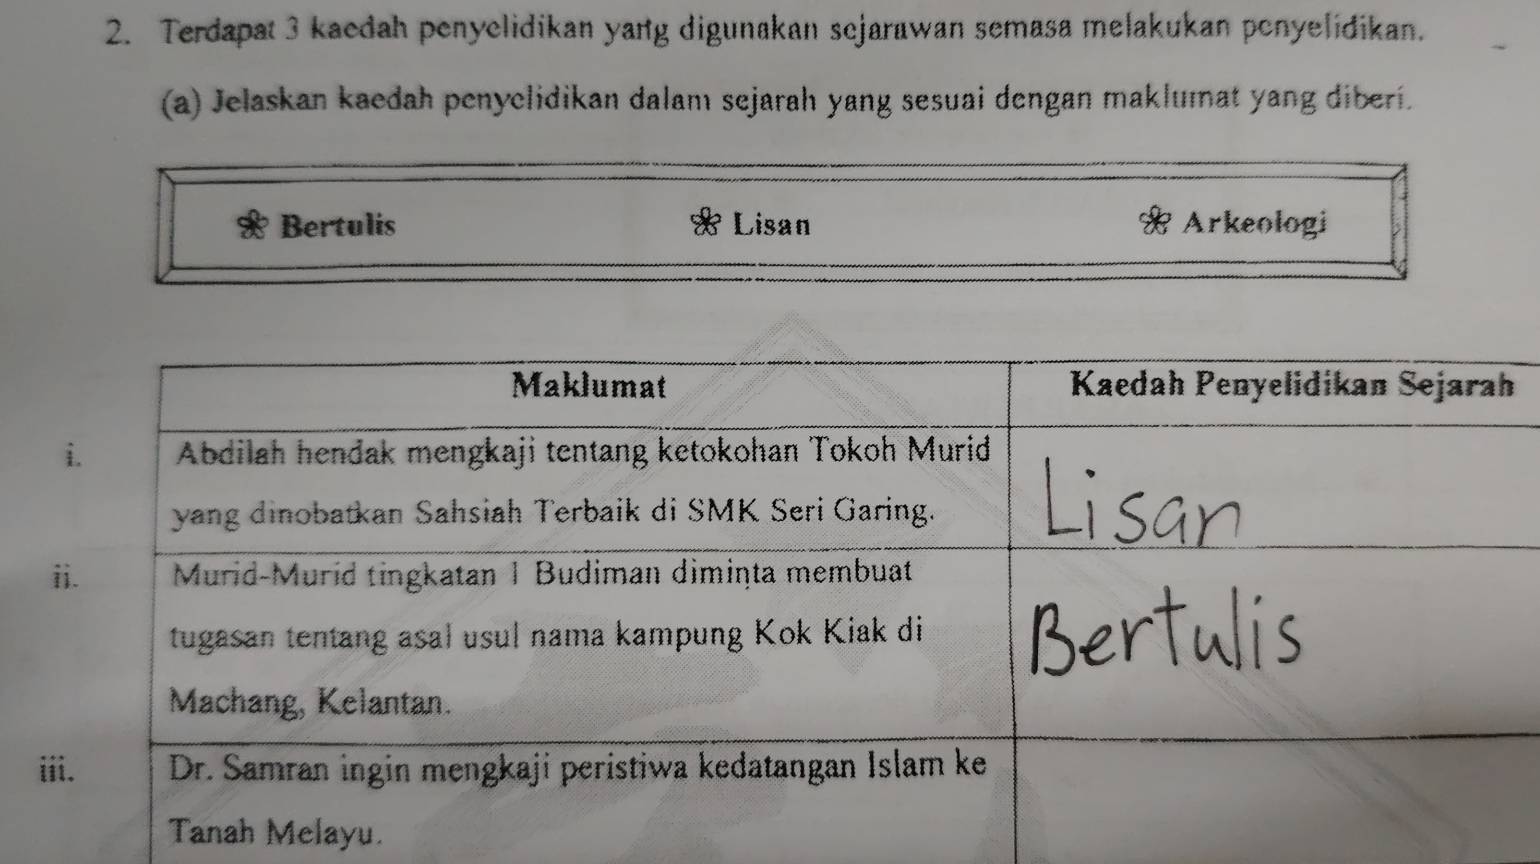 2. Terdapat 3 kaedah penyelidikan yang digunakan sejarawan semasa melakukan penyelidikan.
(a) Jelaskan kaedah penyelidikan dalam sejarah yang sesuai dengan maklumat yang diberi.
Bertulis Lisan Arkeologi
Maklumat Kaedah Penyelidikan Sejarah
i. Abdilah hendak mengkaji tentang ketokohan Tokoh Murid
yang dinobatkan Sahsiah Terbaik di SMK Seri Garing.
Lisan
ii. Murid-Murid tingkatan 1 Budiman diminta membuat
tugasan tentang asal usul nama kampung Kok Kiak di
Machang, Kelantan.
Bertulis
iii. Dr. Samran ingin mengkaji peristiwa kedatangan Islam ke
Tanah Melayu.